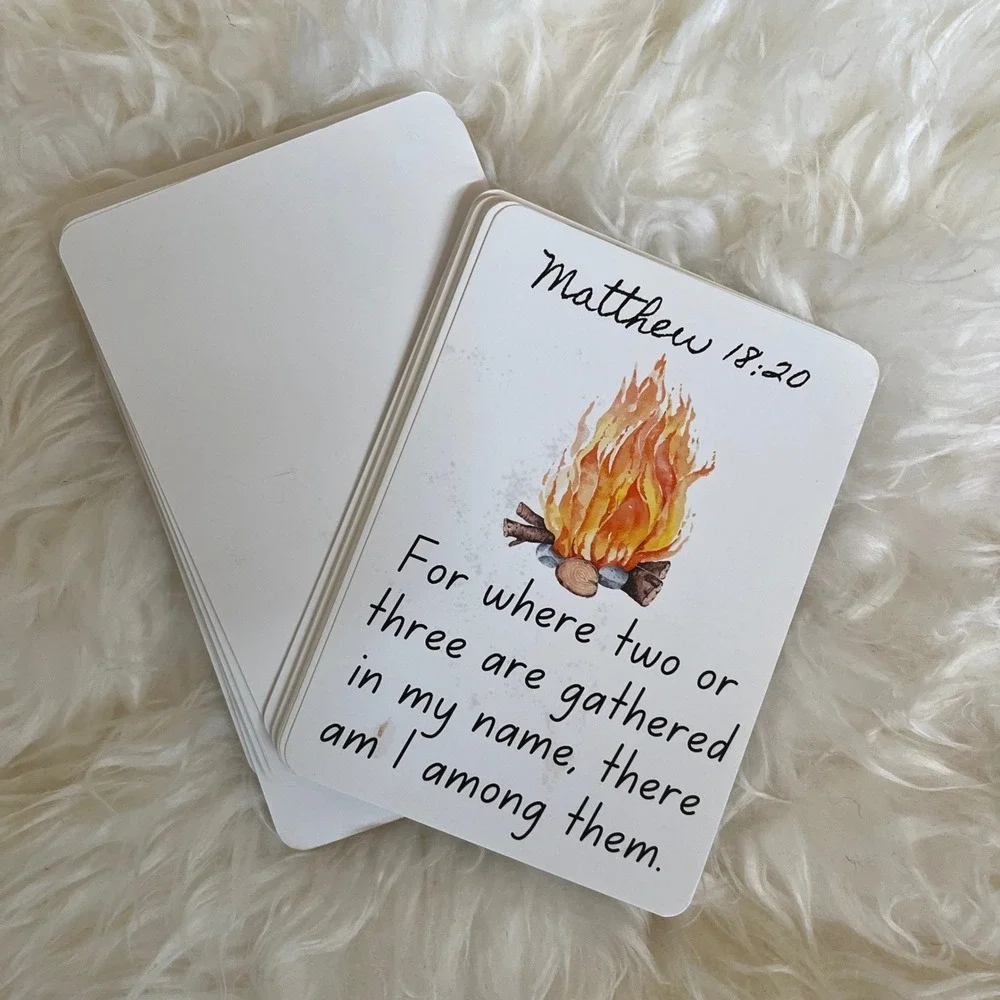 Matthew 18:20
For where two or
three are gathered
in my name, there
am I among them.